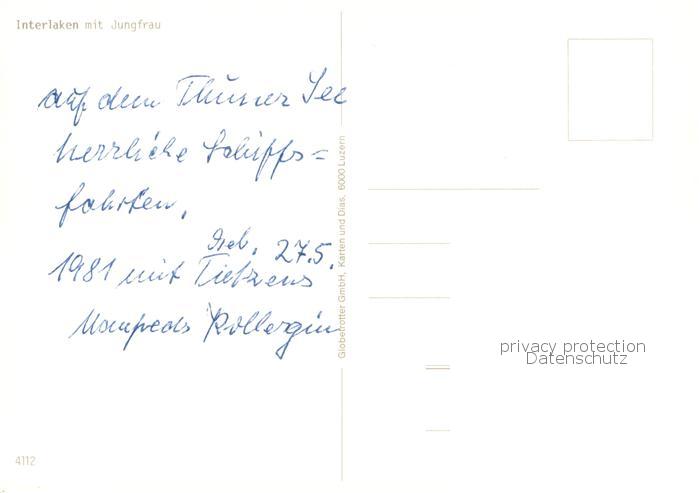 Interlaken mit Jungfrau
auf dem Thuner See
herrliche Schiffs=
fahrten,
27.5.
1981 mit Tietzens
Manfreds Kollegin
Globetrotter GmbH, Karten und Dias, 6000 Luzern
privacy protection
Datenschutz
4112